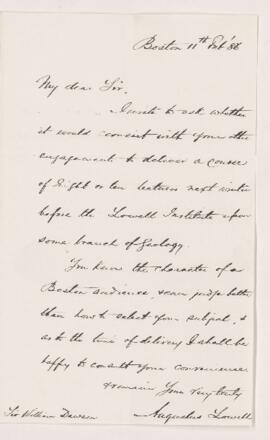 Boston 11th Feb '86
My dear Sir.
I write to ask whether
it would consist with your other
engagements to deliver a course
of Eight or ten lectures next winter
before the Lowell Institute upon
some branch of Geology.
You know the character of a
Boston audience, & can judge better
than how to select your subject, &
as to the time of delivery I shall be
happy to consult your convenience
& remain Yours very truly
Augustus Lowell
Sir William Dawson